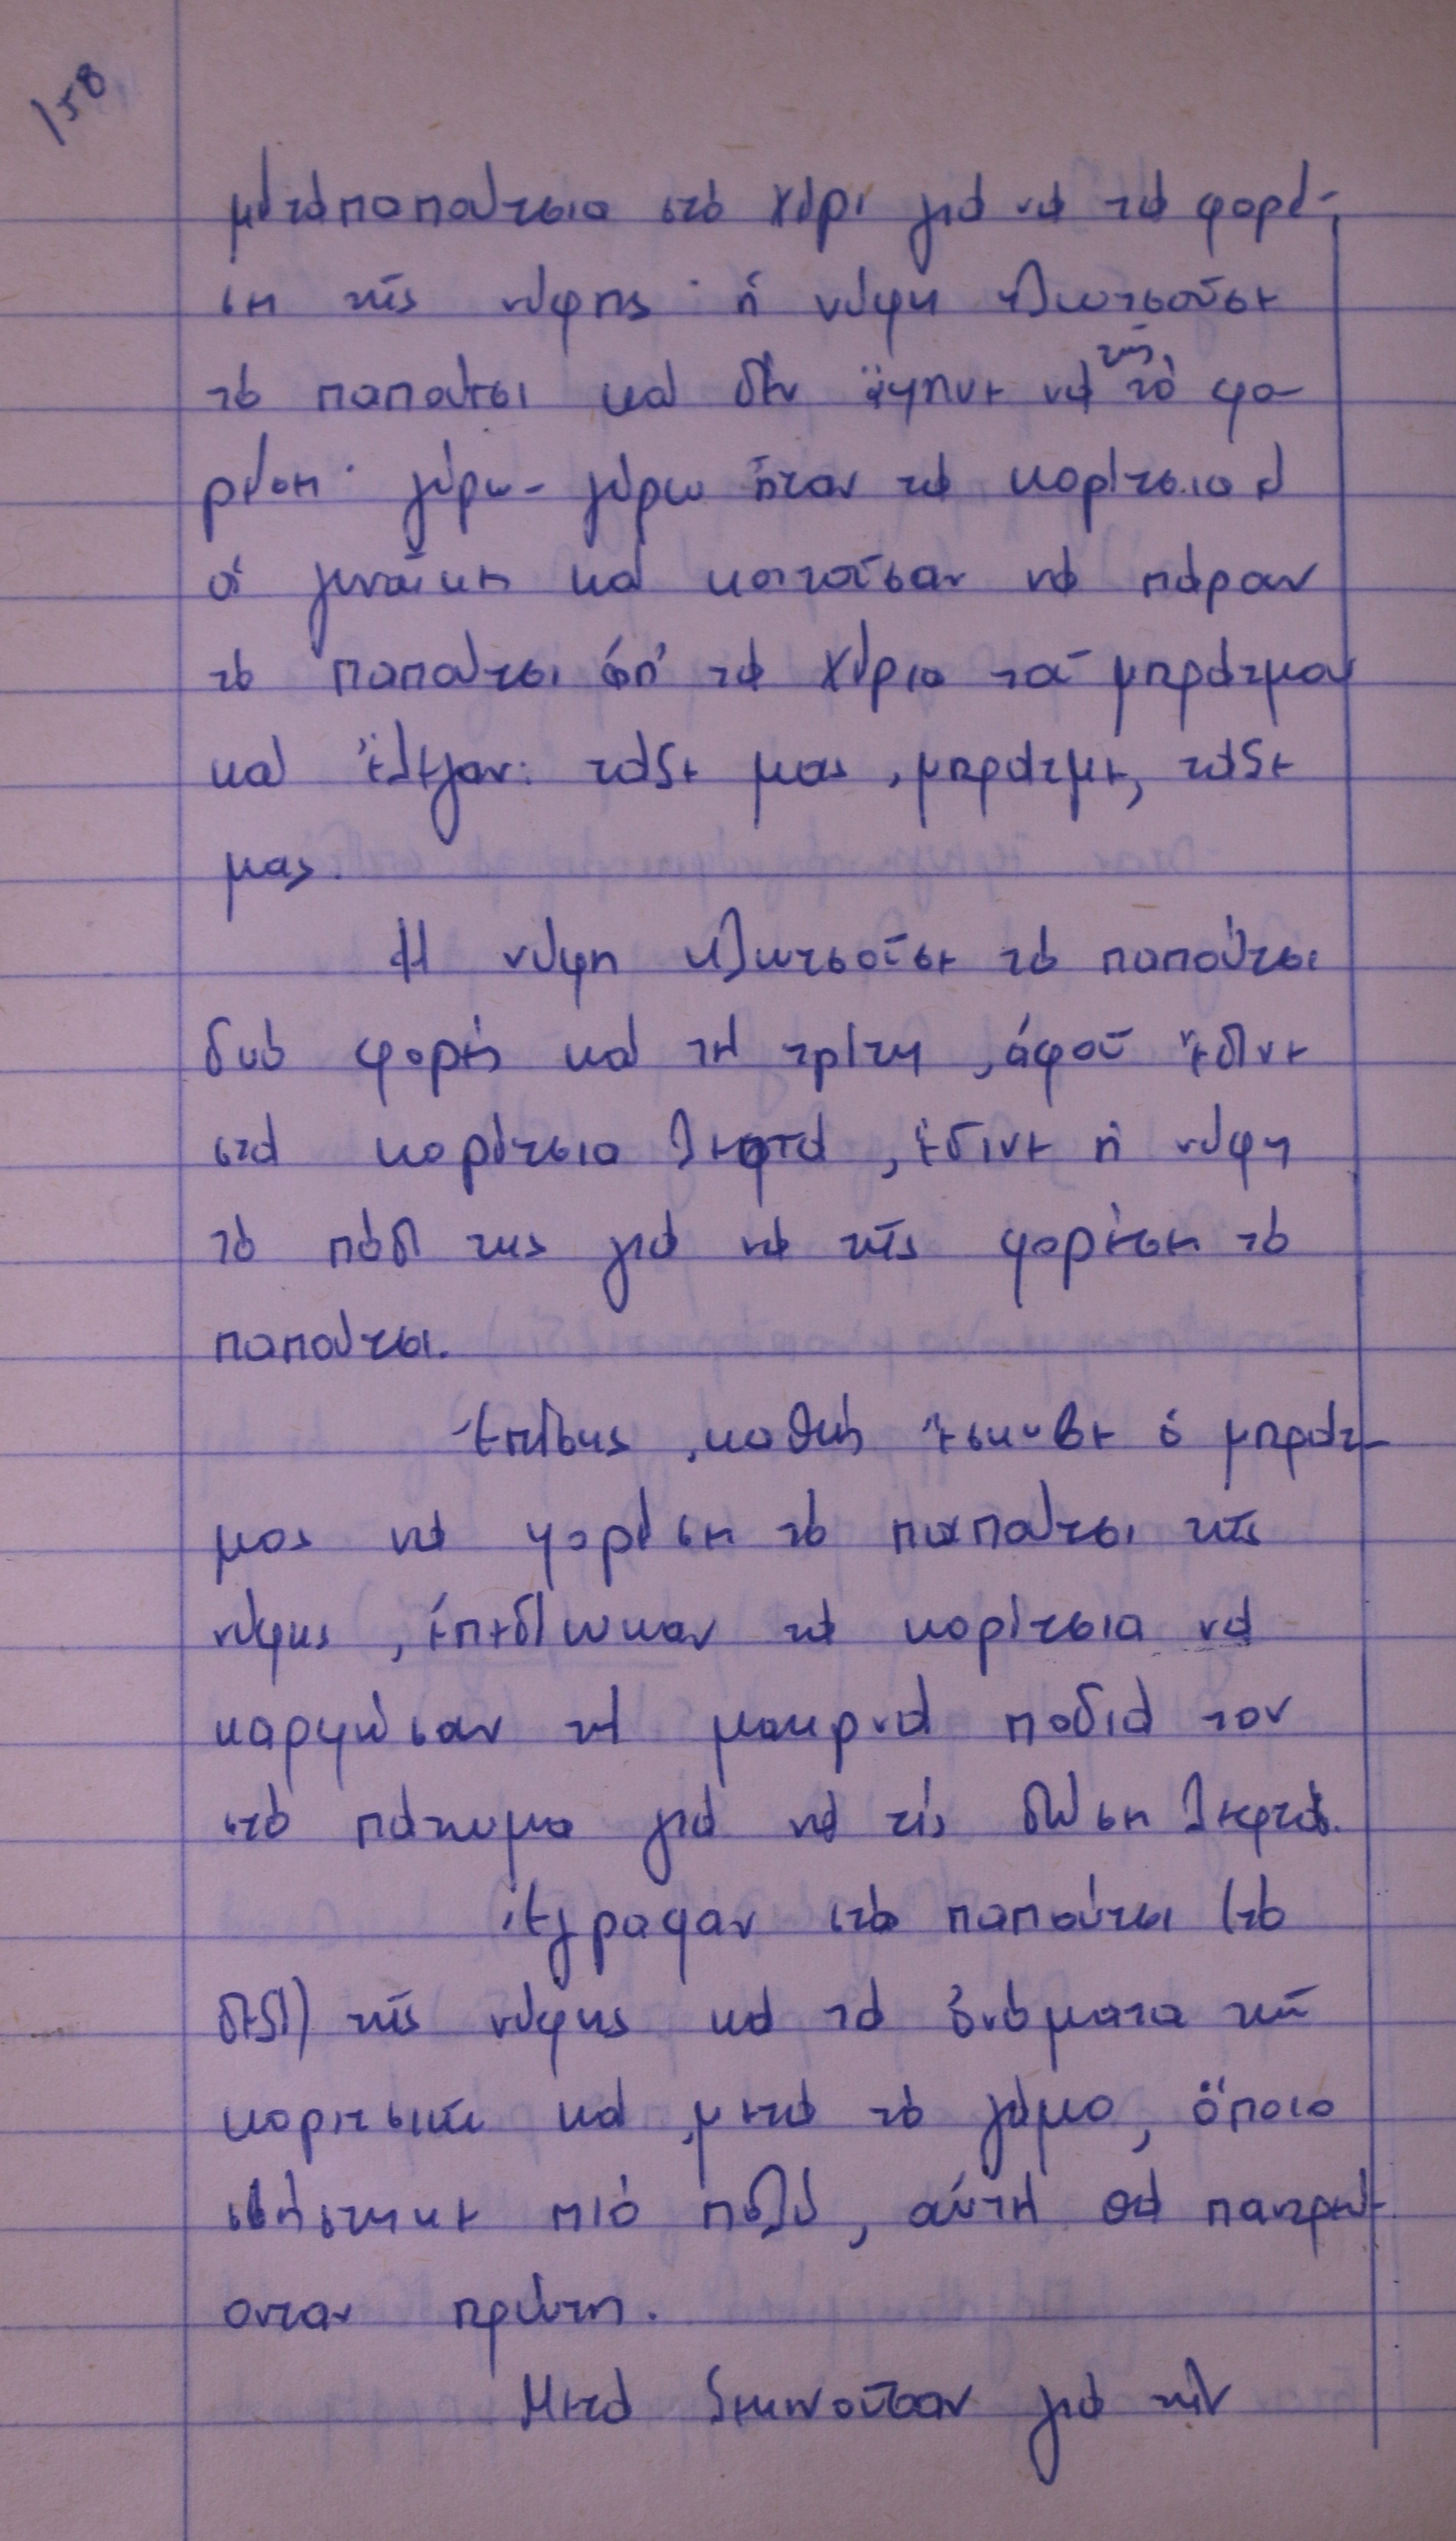 158
μέ τά παπούτσια στό χέρι γιά νά τά φορέ-
ση τῆς νύφης· ἡ νύφη κλωτσοῦσε
τό παπούτσι καί δέν ἄφηνε νά τῆς τό φο-
ρέση· γύρω-γύρω ἦταν τά κορίτσια καί
οἱ γυναῖκες καί κοιτοῦσαν νά πάρουν
τό παπούτσι ἀπ' τά χέρια τοῦ μπράτμου
καί ἔλεγαν: τάξε μας, μπράτμε, τάξε
μας.
Ἡ νύφη κλωτσοῦσε τό παπούτσι
δυό φορές καί τή τρίτη, ἀφοῦ ἔδινε
στά κορίτσια λεφτά, ἔδινε ἡ νύφη
τό πόδι της γιά νά τῆς φορέση τό
παπούτσι.
Ἐπίσης, καθώς ἔσκυβε ὁ μπράτ-
μος νά φορέση τό παπούτσι τῆς
νύφης, ἐπεδίωκαν τά κορίτσια νά
καρφώσουν τή μακρυά ποδιά του
στό πάτωμα γιά νά τίς δώση λεφτά.
Ἔγραφαν στό παπούτσι (τό
δεξί) τῆς νύφης καί τά ὀνόματα τῶν
κοριτσιῶν καί, μετά τό γάμο, ὅποιο
σβήστηκε πιό πολύ, αὐτή θά παντρεύ-
ονταν πρώτη.
Μετά ξεκινοῦσαν γιά τήν